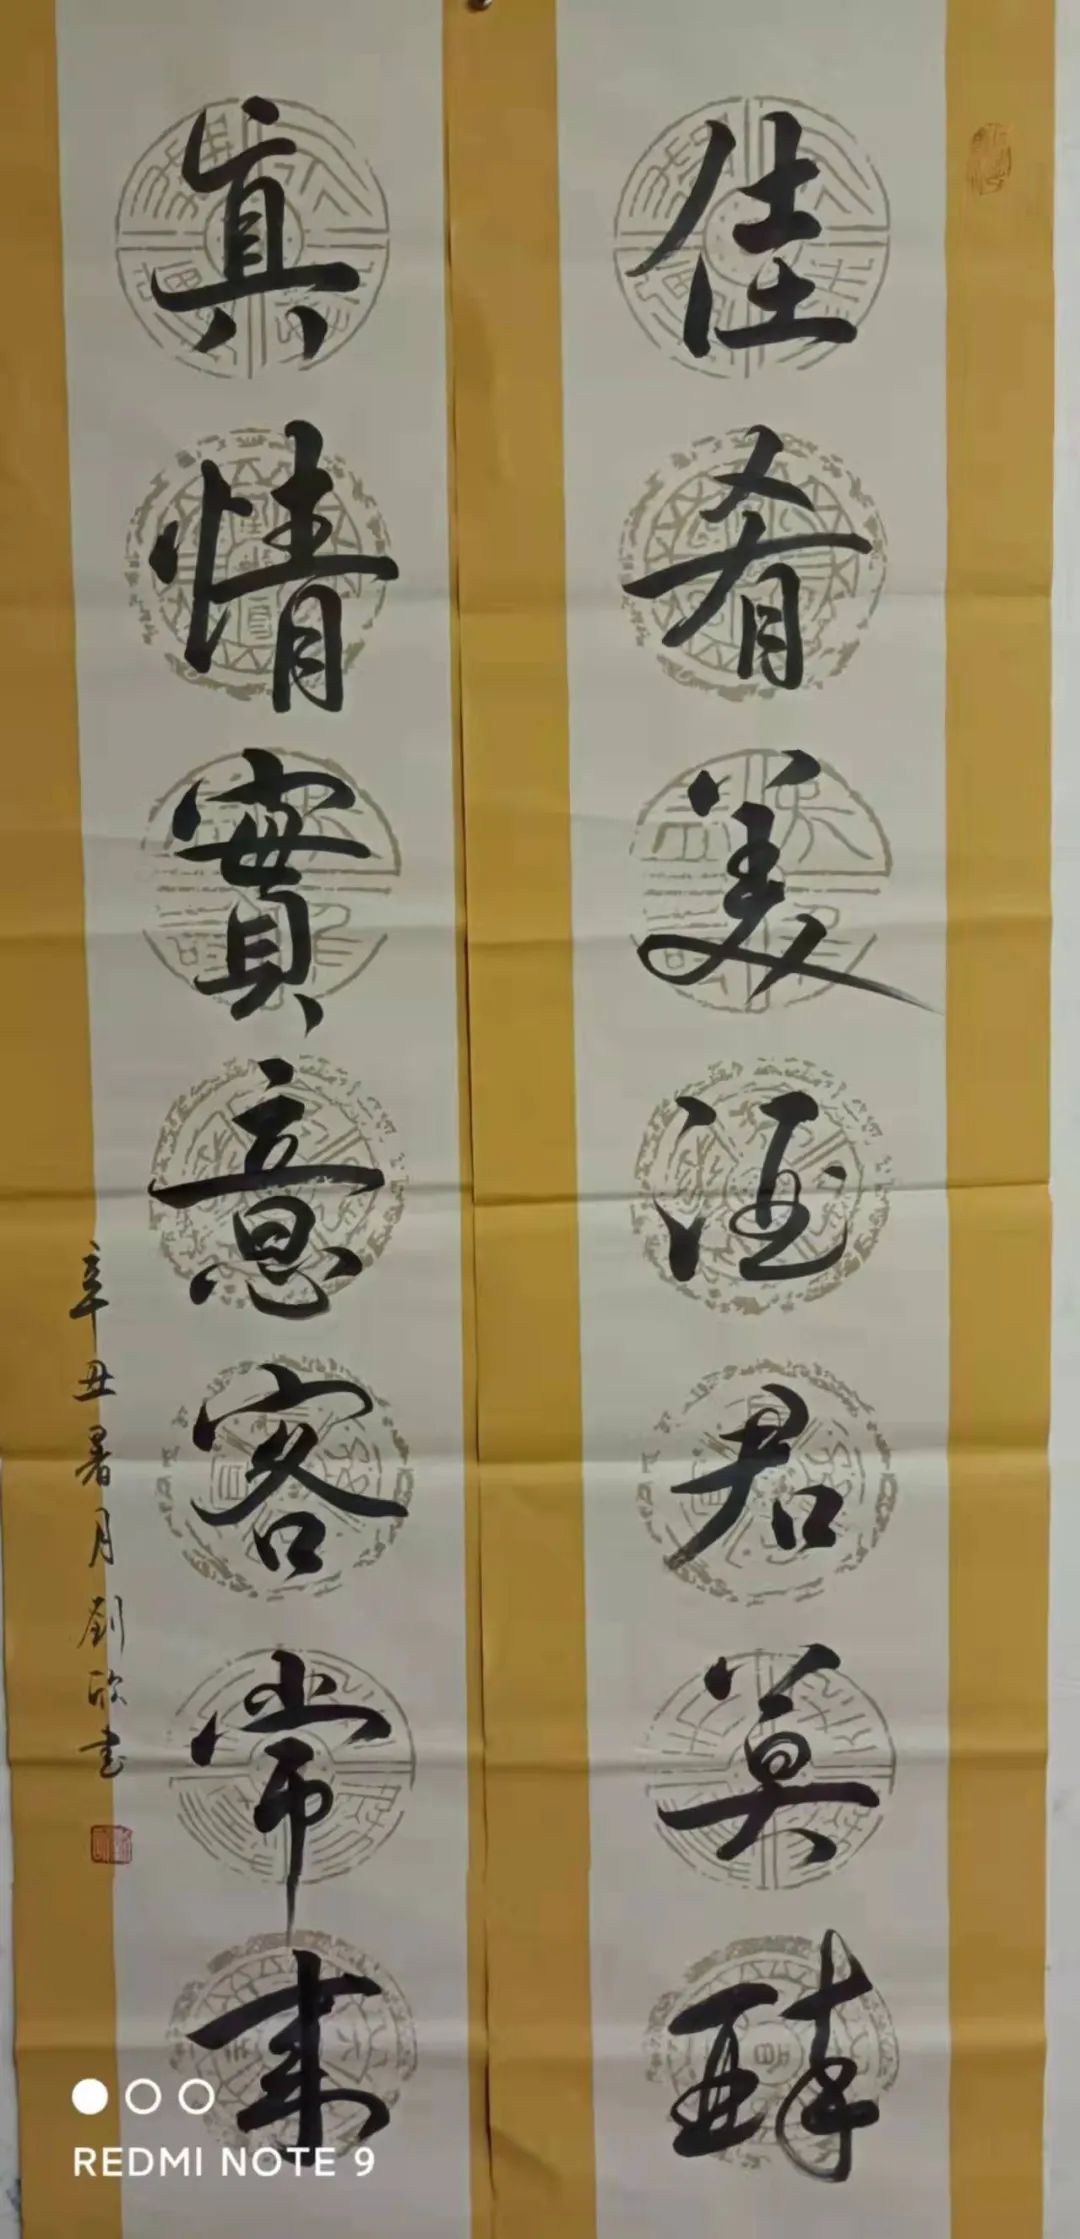 佳肴美酒君莫醉
真情實意客常来
辛丑暑月劉欣书
REDMI NOTE 9